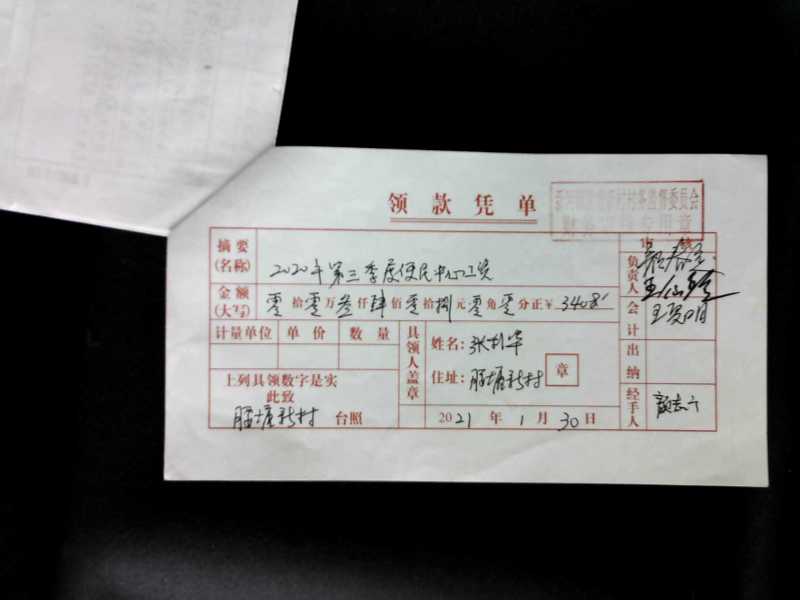 领款凭单
村务监督委员会
审核
摘要(名称) 2020年第三季度便民中心工资
金额(大写) 零拾零万叁仟肆佰零拾捌元零角零分正¥3408
计量单位 单价 数量
上列具领数字是实
此致
塘新村 台照
具领人盖章
姓名:张
住址: 塘新村
章
2021年1月30日
负责人
会计
出纳
经手人